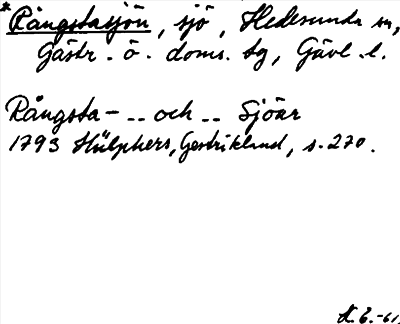 *Rångstasjön, sjö, Hedesunda sn,
Gästr. ö. doms. tg, Gävl. l.
Rångsta- -- och -- Sjöar
1793 Hülphers, Gestrikland, s. 270.
6.-61.